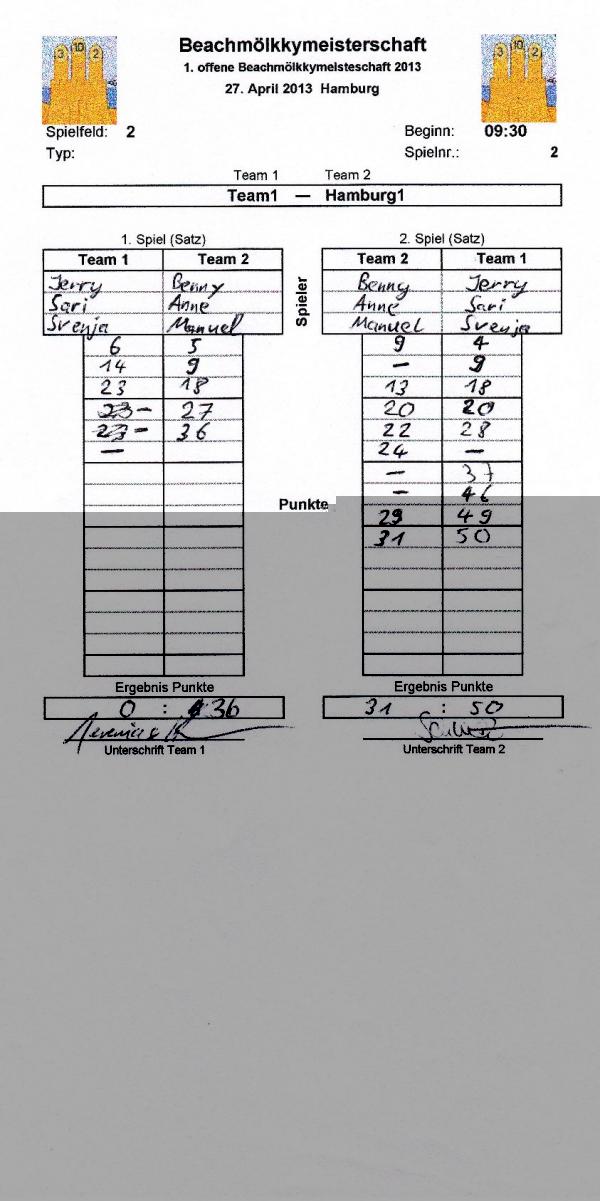 3 10 2
3 10 2
Beachmölkkymeisterschaft
1. offene Beachmölkkymeisteschaft 2013
27. April 2013 Hamburg
Spielfeld: 2 Beginn: 09:30
Typ: Spielnr.: 2
Team 1 Team 2
Team1 — Hamburg1
1. Spiel (Satz) 2. Spiel (Satz)
Team 1 Team 2 Team 2 Team 1
Jerry Benny Benny Jerry
Sari Anne Anne Sari
Svenja Manuel Manuel Svenja
Spieler
6 5 9 4
14 9 — 9
23 18 13 18
23 — 27 20 20
23 — 36 22 28
— 24 —
— 37
— 46
Punkte
29 49
31 50
Ergebnis Punkte Ergebnis Punkte
0 : 36 31 : 50
Unterschrift Team 1 Unterschrift Team 2